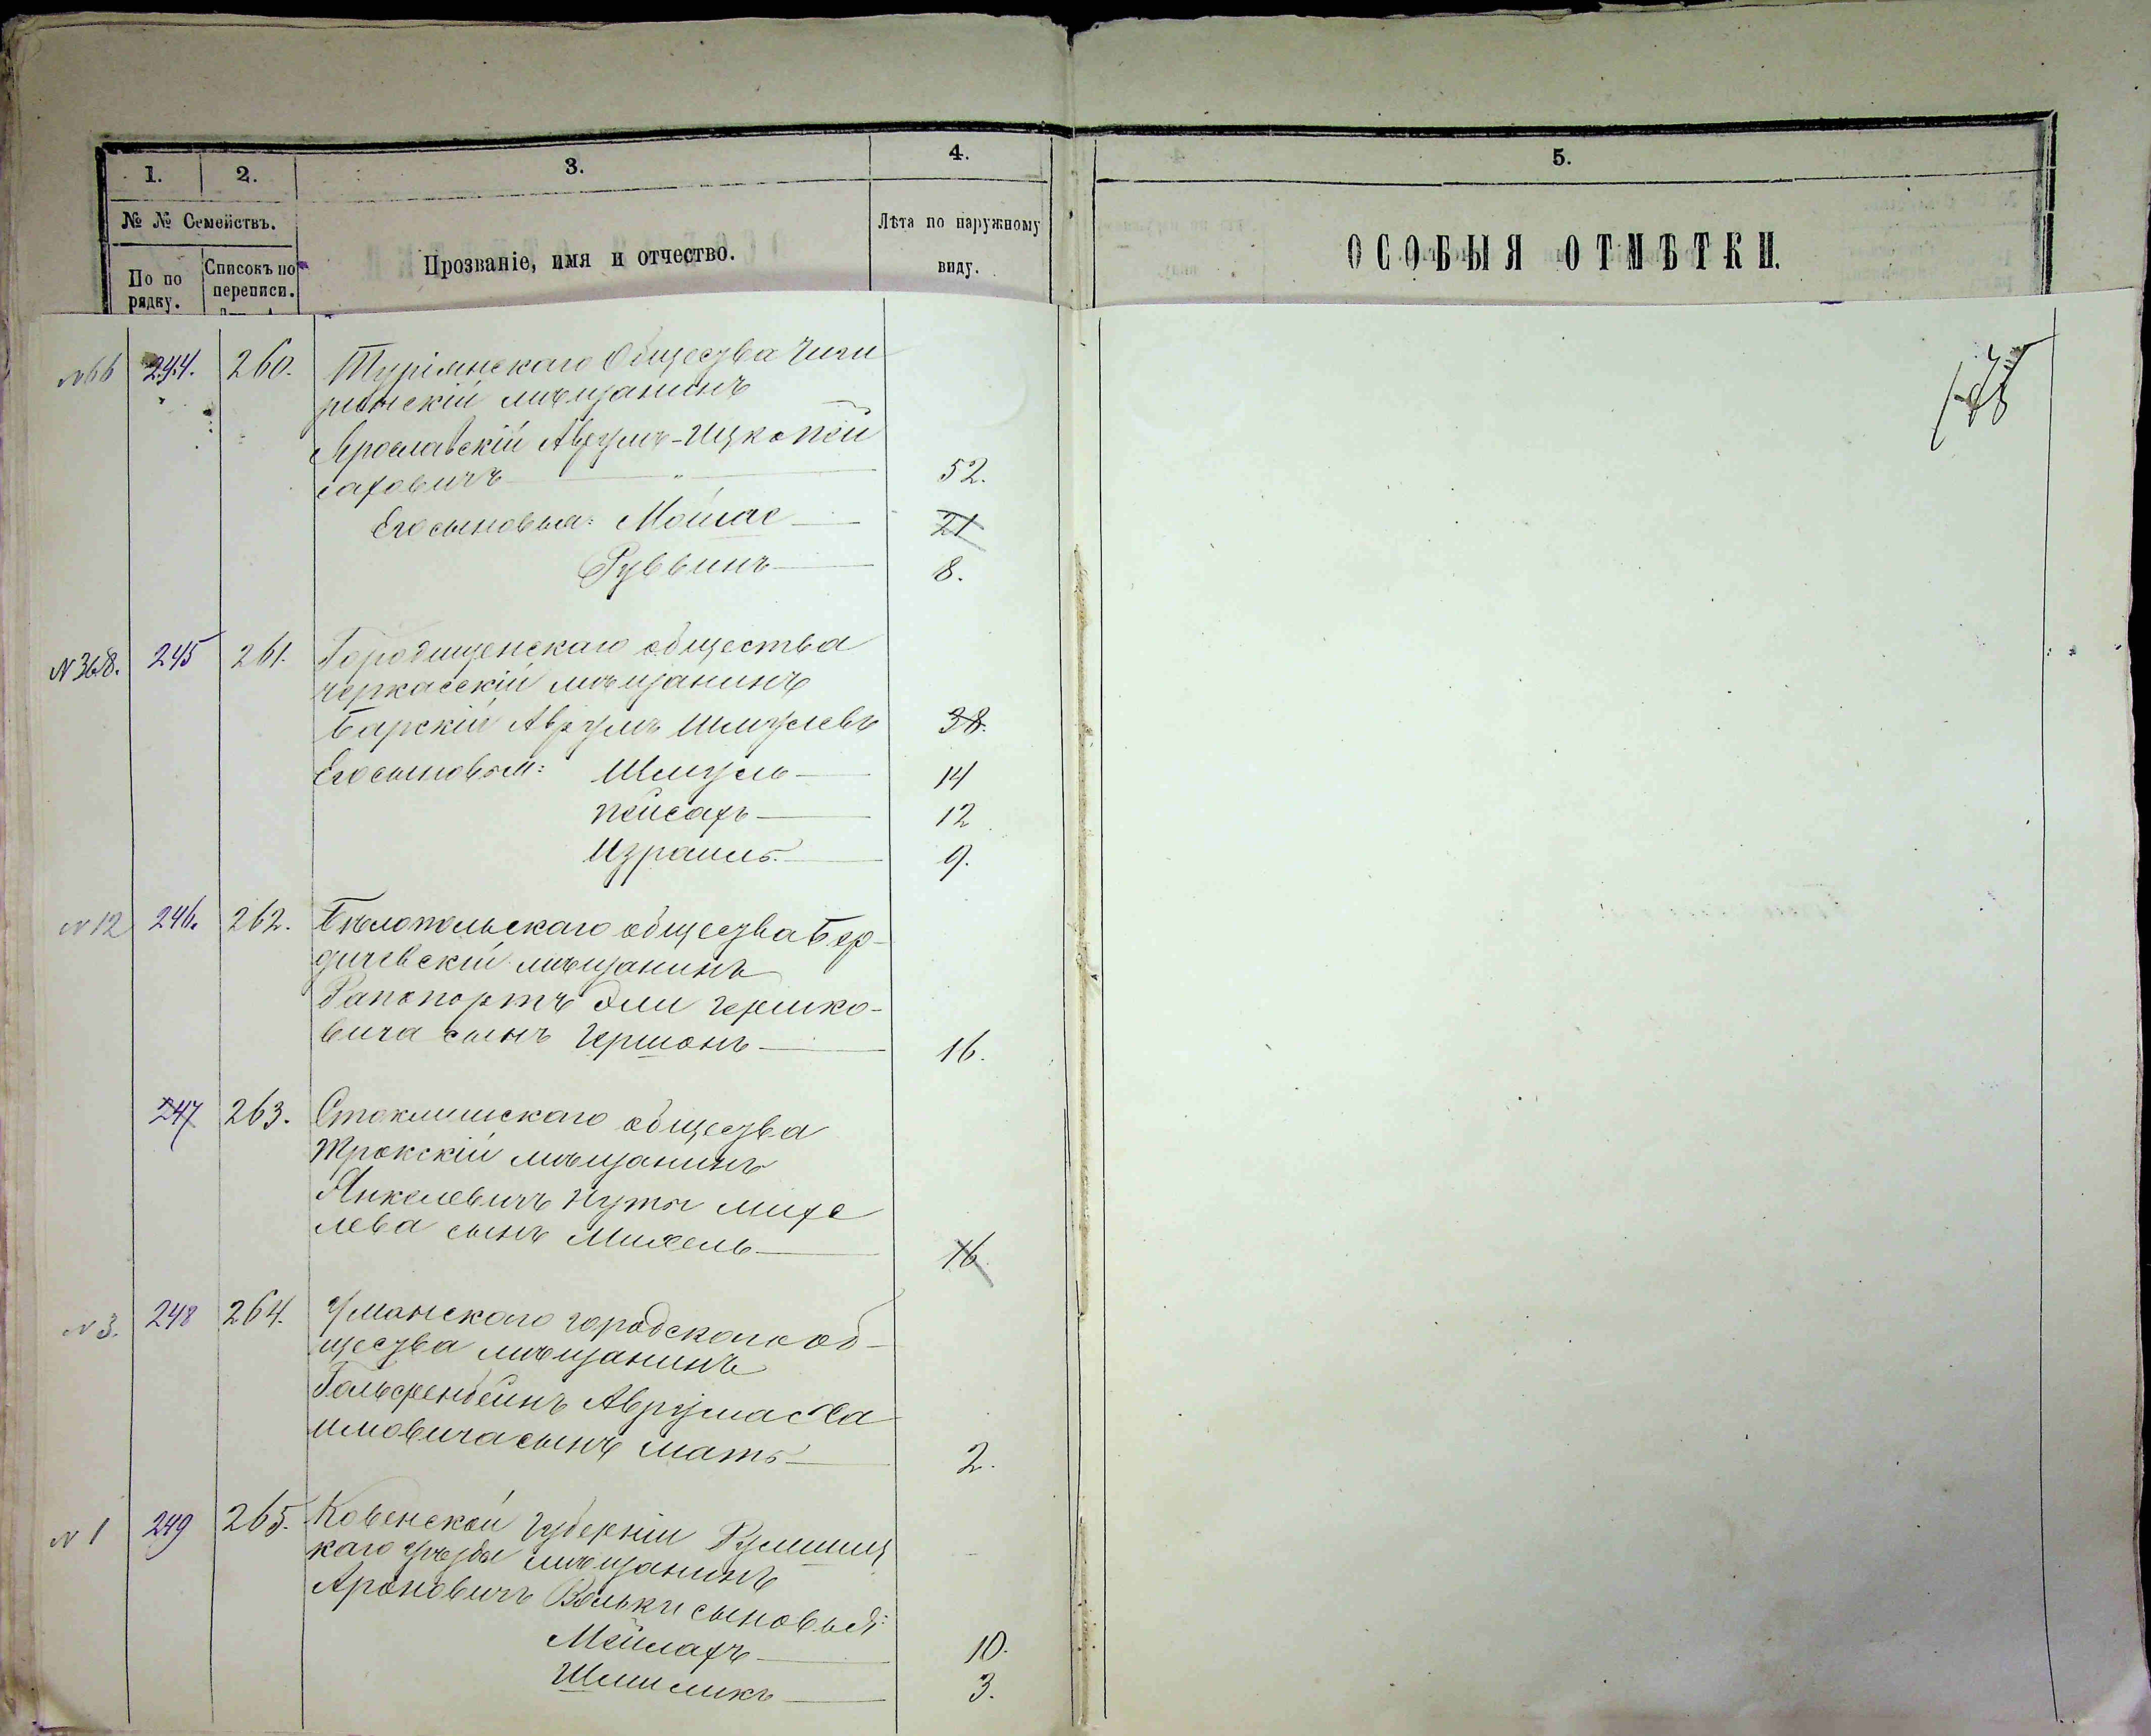 1. 2. 3. 4. 5.
№ № Семействъ.
По по рядку.
Списокъ по переписи.
Прозваніе, имя и отчество.
Лѣта по наружному виду.
ОСОБЫЯ ОТМѢТКИ.
175
№66 244. 260. Туріянскаго Общества Чиги
ринскій мѣщанинъ
Ярославскій Аврумъ-Ицко Пей
сахович ъ — " — 52.
Его сыновья: Мошие — 21
Руввинъ — 8.
№368. 245 261. Городищенскаго общества
черкасскій мѣщанинъ
Барскій Аврумъ Шмулевъ 38.
Его сыновья: Шмуль — 14
Пейсахъ — 12
Израиль. — 9.
№12 246. 262. Бѣлопольскаго общества Бер-
дичевскій мѣщанинъ
Рапопортъ Эли Гершко-
вича сынъ Гершонъ — 16.
247 263. Стоклишскаго общества
Трокскій мѣщанинъ
Янкелевичъ Нуты Михе
лева сынъ Михель — 16
№3. 248 264. Уманскаго городского об-
щества мѣщанинъ
Гольфенбейнъ Аврума Ха
имовича сынъ Мать — 2.
№1 249 265. Ковенской губерніи Румшиш
каго
мѣщанинъ
Ароновичъ Вольки сыновья:
Мейлахъ — 10.
Шлиомикъ — 3.